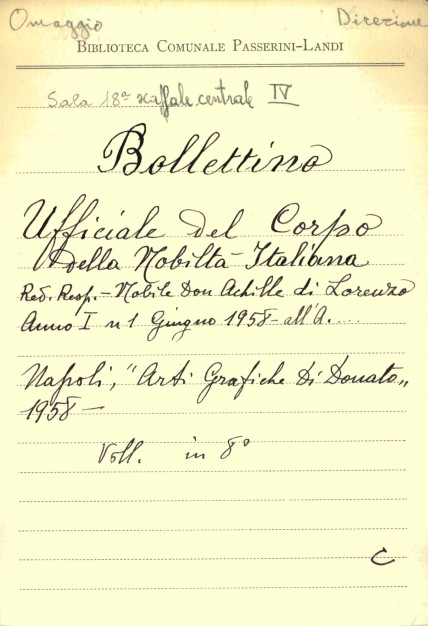 Omaggio Direzione
BIBLIOTECA COMUNALE PASSERINI-LANDI
Sala 18ª scaffale centrale IV
Bollettino
Ufficiale del Corpo
della Nobiltà Italiana
Red. Resp. - Nobile Don Achille di Lorenzo
Anno I n 1 Giugno 1958 - all'A....
Napoli, "Arti Grafiche Di Donato"
1958 -
Voll. in 8º
C